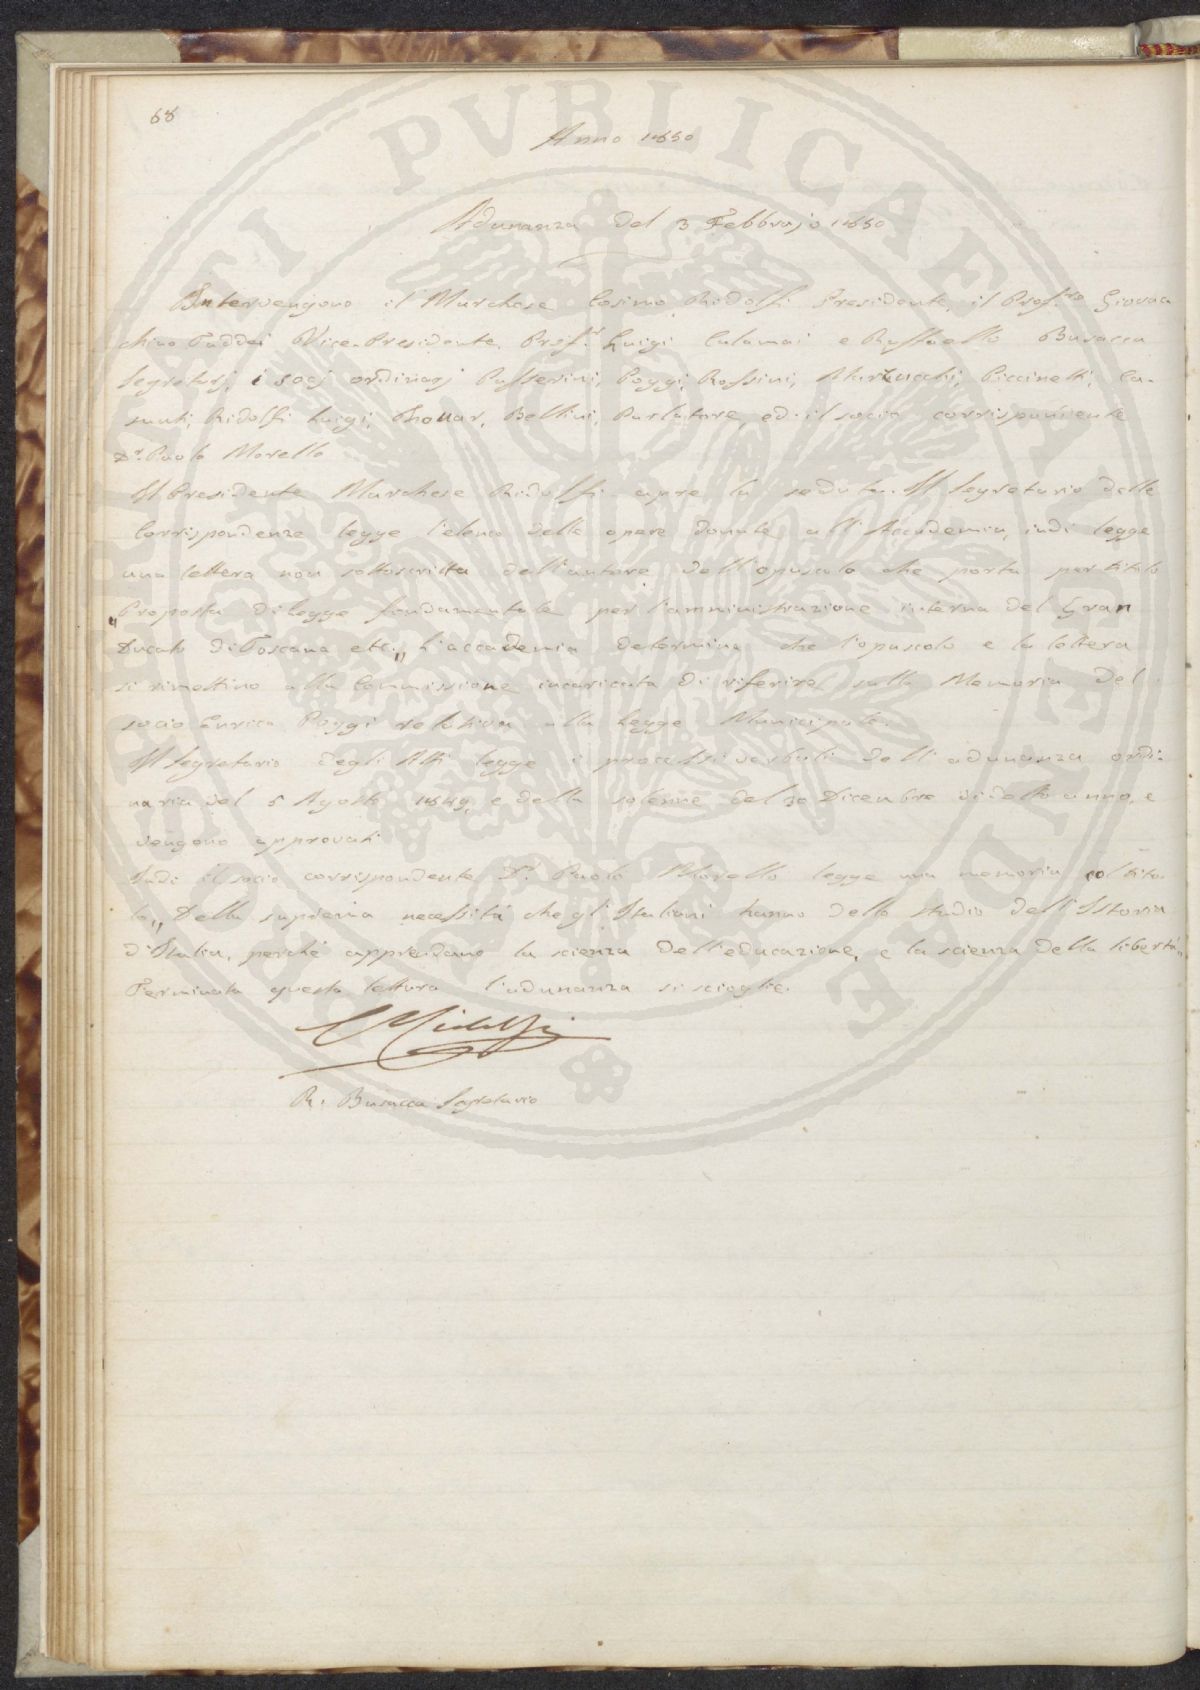 68
Anno 1850
Adunanza del 3 Febbrajo 1850
Intervengono il Marchese Cosimo Ridolfi Presidente, il Prof.re Giovac
chino Taddei Vice-Presidente, Prof.r Luigi Calamai e Raffaello Busacca
Segretarj, i socj ordinarj Passerini, Poggi, Rossini, Martucchi, Piccinetti, Ca-
santi, Ridolfi Luigi, Thouar, Bellini, Parlatore, ed il socio corrispondente
D.r Paolo Morello
Il Presidente Marchese Ridolfi apre la seduta. Il Segretario delle
Corrispondenze legge l'elenco delle opere donate all'Accademia, indi legge
una lettera non sottoscritta dell'autore dell'opuscolo che porta per titolo
„Proposta di legge fondamentale per l'amministrazione interna del Gran
Ducato di Toscana etc.„ L'accademia determina che l'opuscolo e la lettera
si rimettino alla Commissione incaricata di riferire sulla Memoria del
socio Enrico Poggi relativa alla Legge Municipale.
Il Segretario degli Atti legge i processi verbali dell'adunanza ordi-
naria del 5 Agosto 1849, e della solenne del 30 Dicembre di detto anno, e
vengono approvati
Indi il socio corrispondente D.r Paolo Morello legge una memoria col tito-
lo „Della suprema necessità che gl'Italiani hanno dello studio dell'Istoria
d'Italia, perché apprendano la scienza dell'educazione, e la scienza della libertà„
Terminata questa lettura l'adunanza si scioglie.
C Ridolfi
R. Busacca Segretario
PVBLICAE